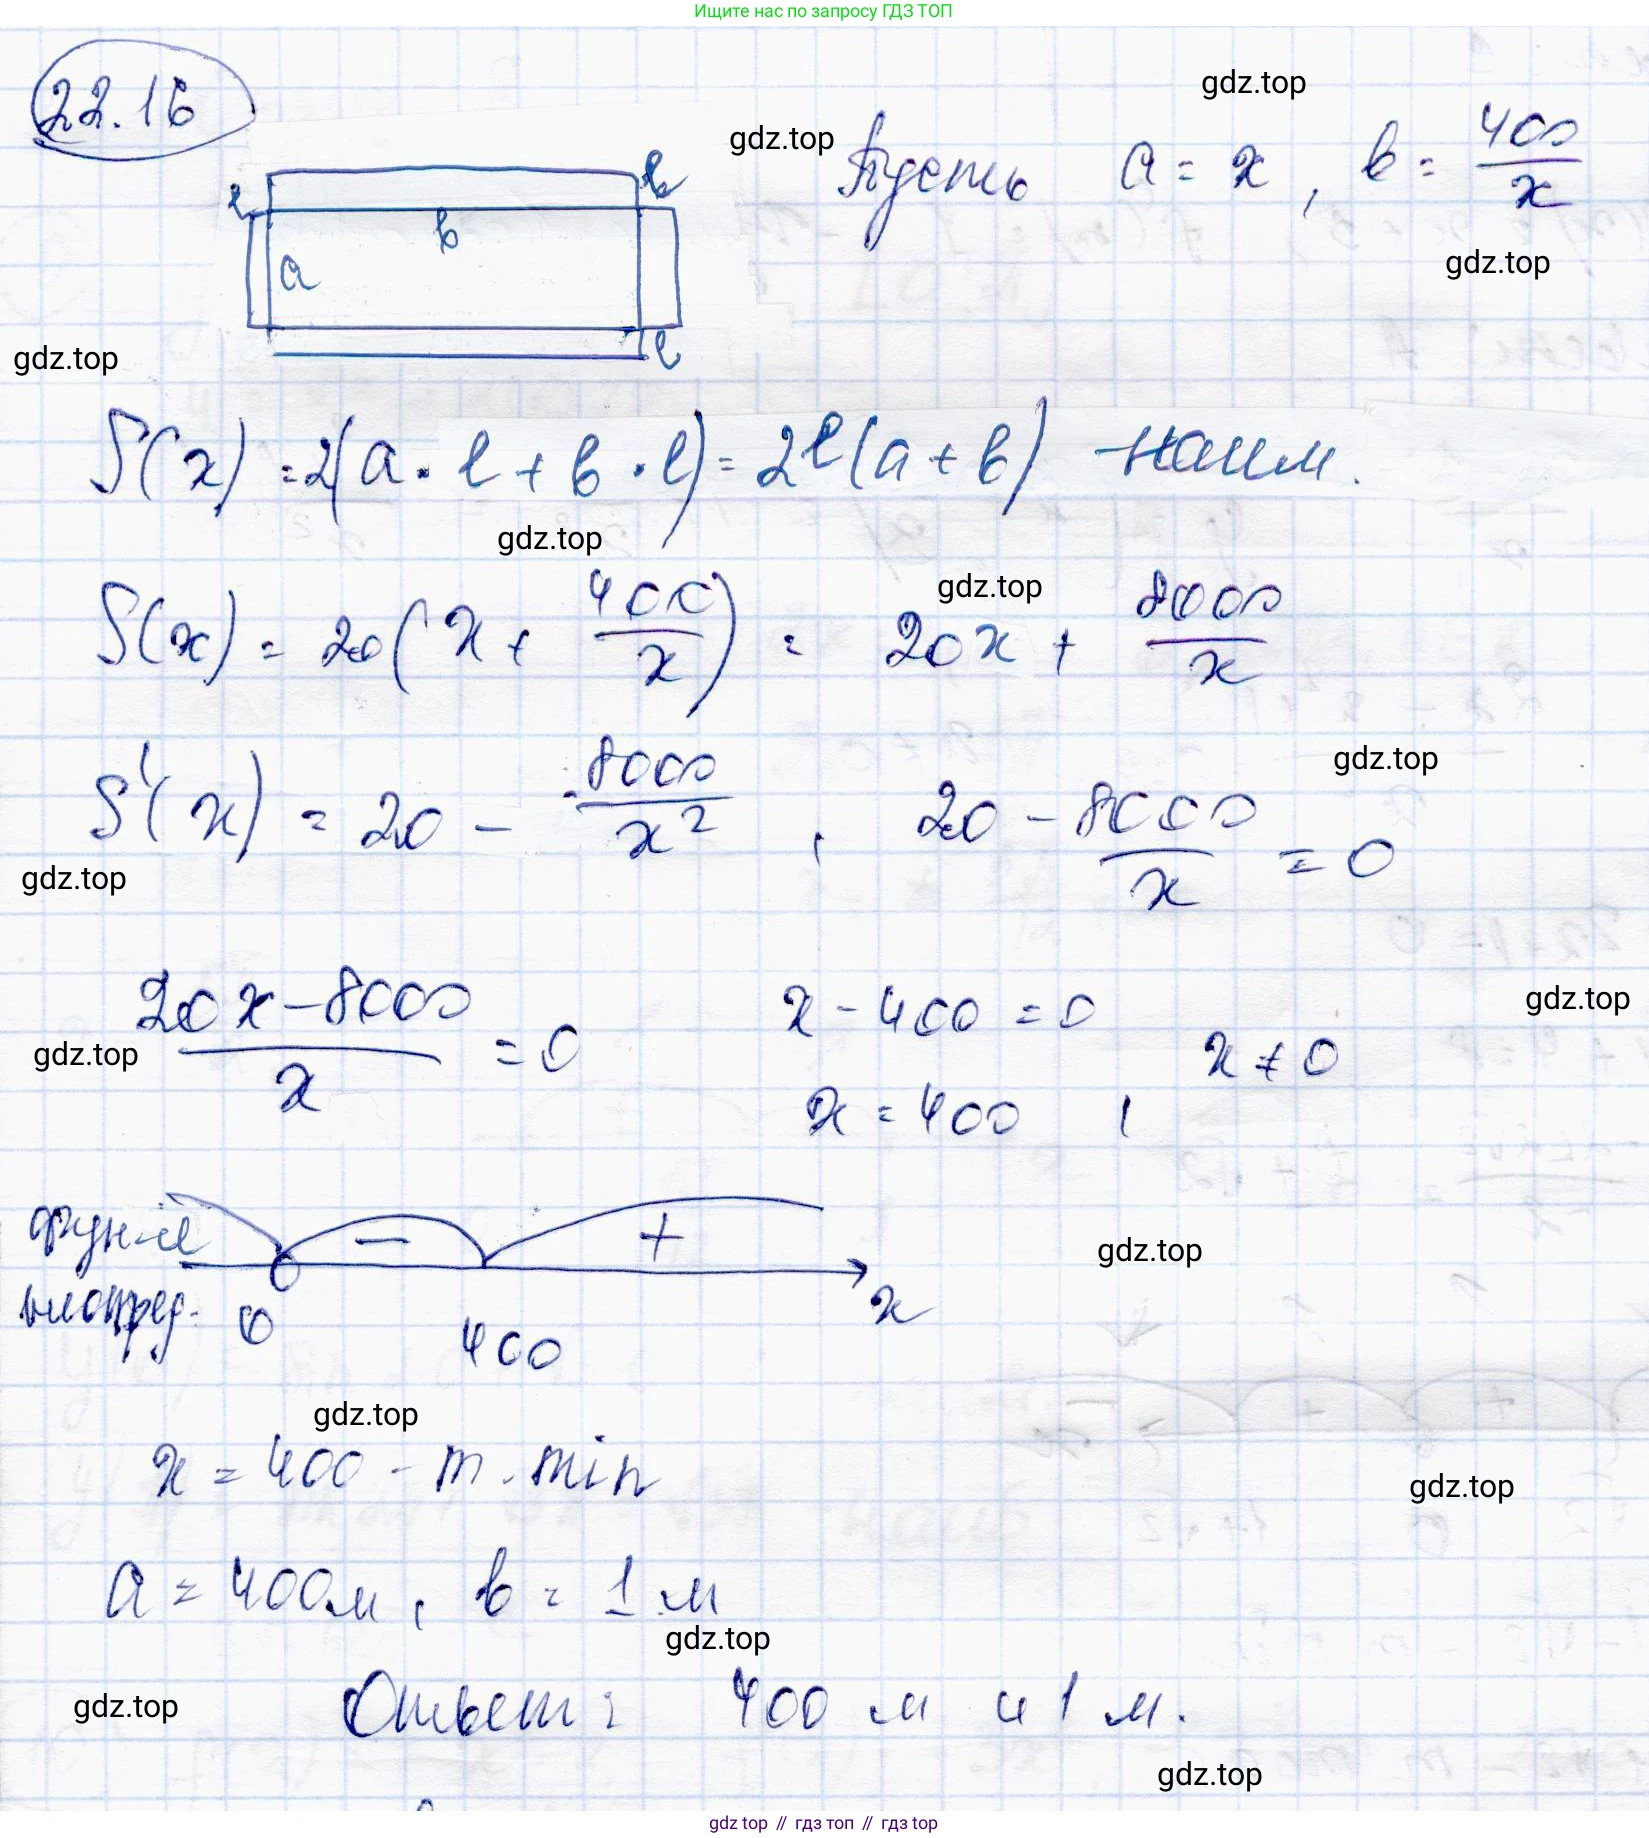 Ищите нас по запросу ГДЗ ТОП
22.16
gdz.top
gdz.top
Пусть a = x , b = 400/x
gdz.top
l
l
b
a
l
gdz.top
S(x) = 2(a · l + b · l) = 2l(a + b) – наим.
gdz.top
gdz.top
S(x) = 20(x + 400/x) = 20x + 8000/x
gdz.top
S'(x) = 20 - 8000/x² , 20 - 8000/x = 0
gdz.top
(20x - 8000)/x = 0 x - 400 = 0
gdz.top
gdz.top
x = 400 , x ≠ 0
фун-я – + x
неопред. 0 400
gdz.top
gdz.top
x = 400 - m. min
gdz.top
a = 400 м, b = 1 м
gdz.top
gdz.top
Ответ: 400 м и 1 м.
gdz.top
gdz top // гдз топ // гдз top